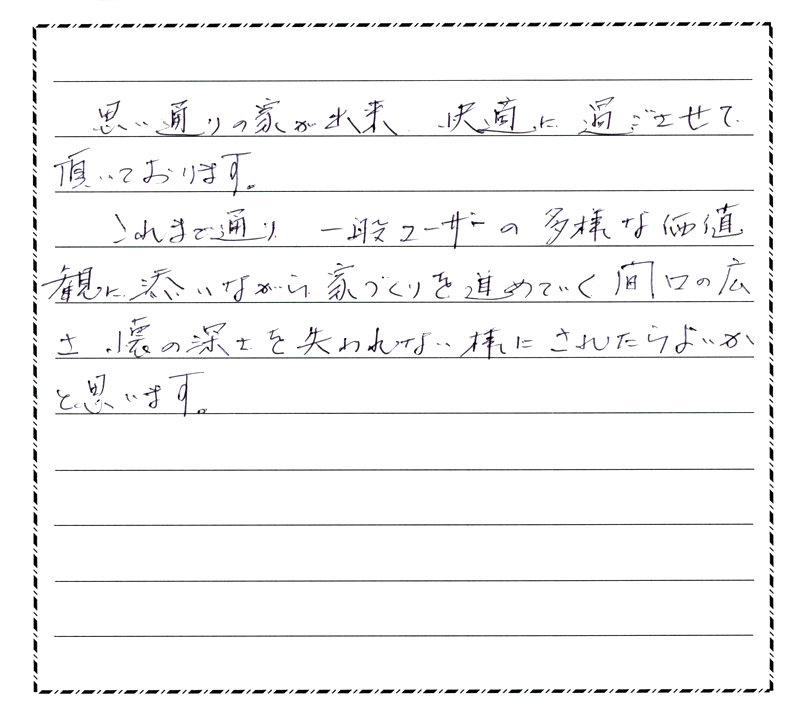 思い通りの家が出来 快適に過ごさせて
頂いております。
これまで通り 一般ユーザーの多様な価値
観に添いながら家づくりを進めていく間口の広
さ、懐の深さを失われない様にされたらよいか
と思います。